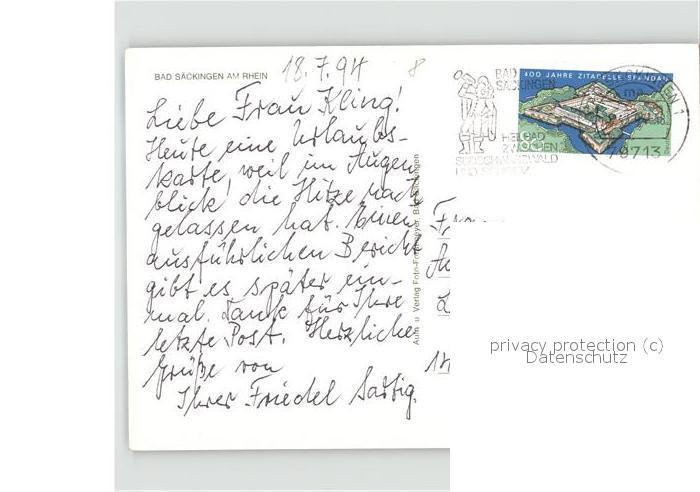 BAD SÄCKINGEN AM RHEIN
18.7.94
Liebe Frau Kling!
Heute eine Urlaubs-
karte, weil im Augen-
blick die Hitze nach-
gelassen hat. Einen
ausführlichen Bericht
gibt es später ein-
mal. Dank für Ihre
letzte Post. Herzliche
Grüße von
Ihrer Friedel
Bad Säckingen
BAD
SÄCKINGEN
HEILBAD
ZWISCHEN
SÜDSCHWARZWALD
UND SCHWEIZ
400 JAHRE ZITADELLE SPANDAU
79713
privacy protection (c)
Datenschutz